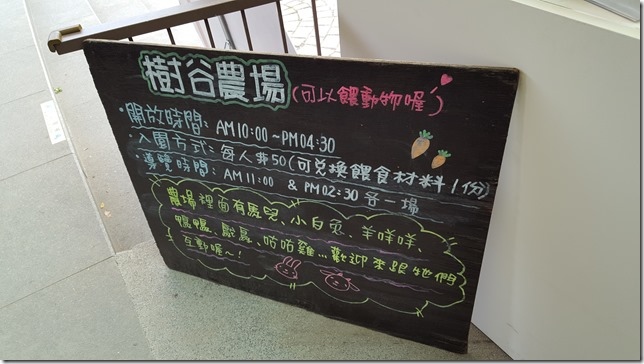 樹谷農場(可以餵動物喔)
・開放時間: AM10:00~PM04:30
・入園方式: 每人$50(可兌換餵食材料1份)
・導覽時間: AM11:00 & PM02:30 各一場
農場裡面有馬兒、小白兔、羊咩咩、
鴨鴨、、咕咕雞...歡迎來跟牠們
互動喔~!